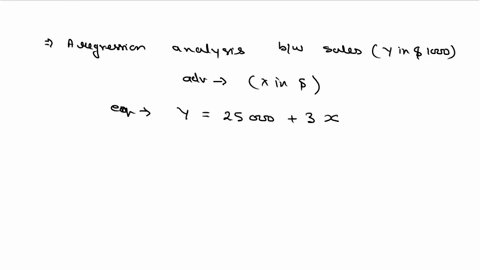 ⇒ A regression analysis b/w sales (Y in $ 1000)
adv → (X in $)
eqn → Y = 25000 + 3x